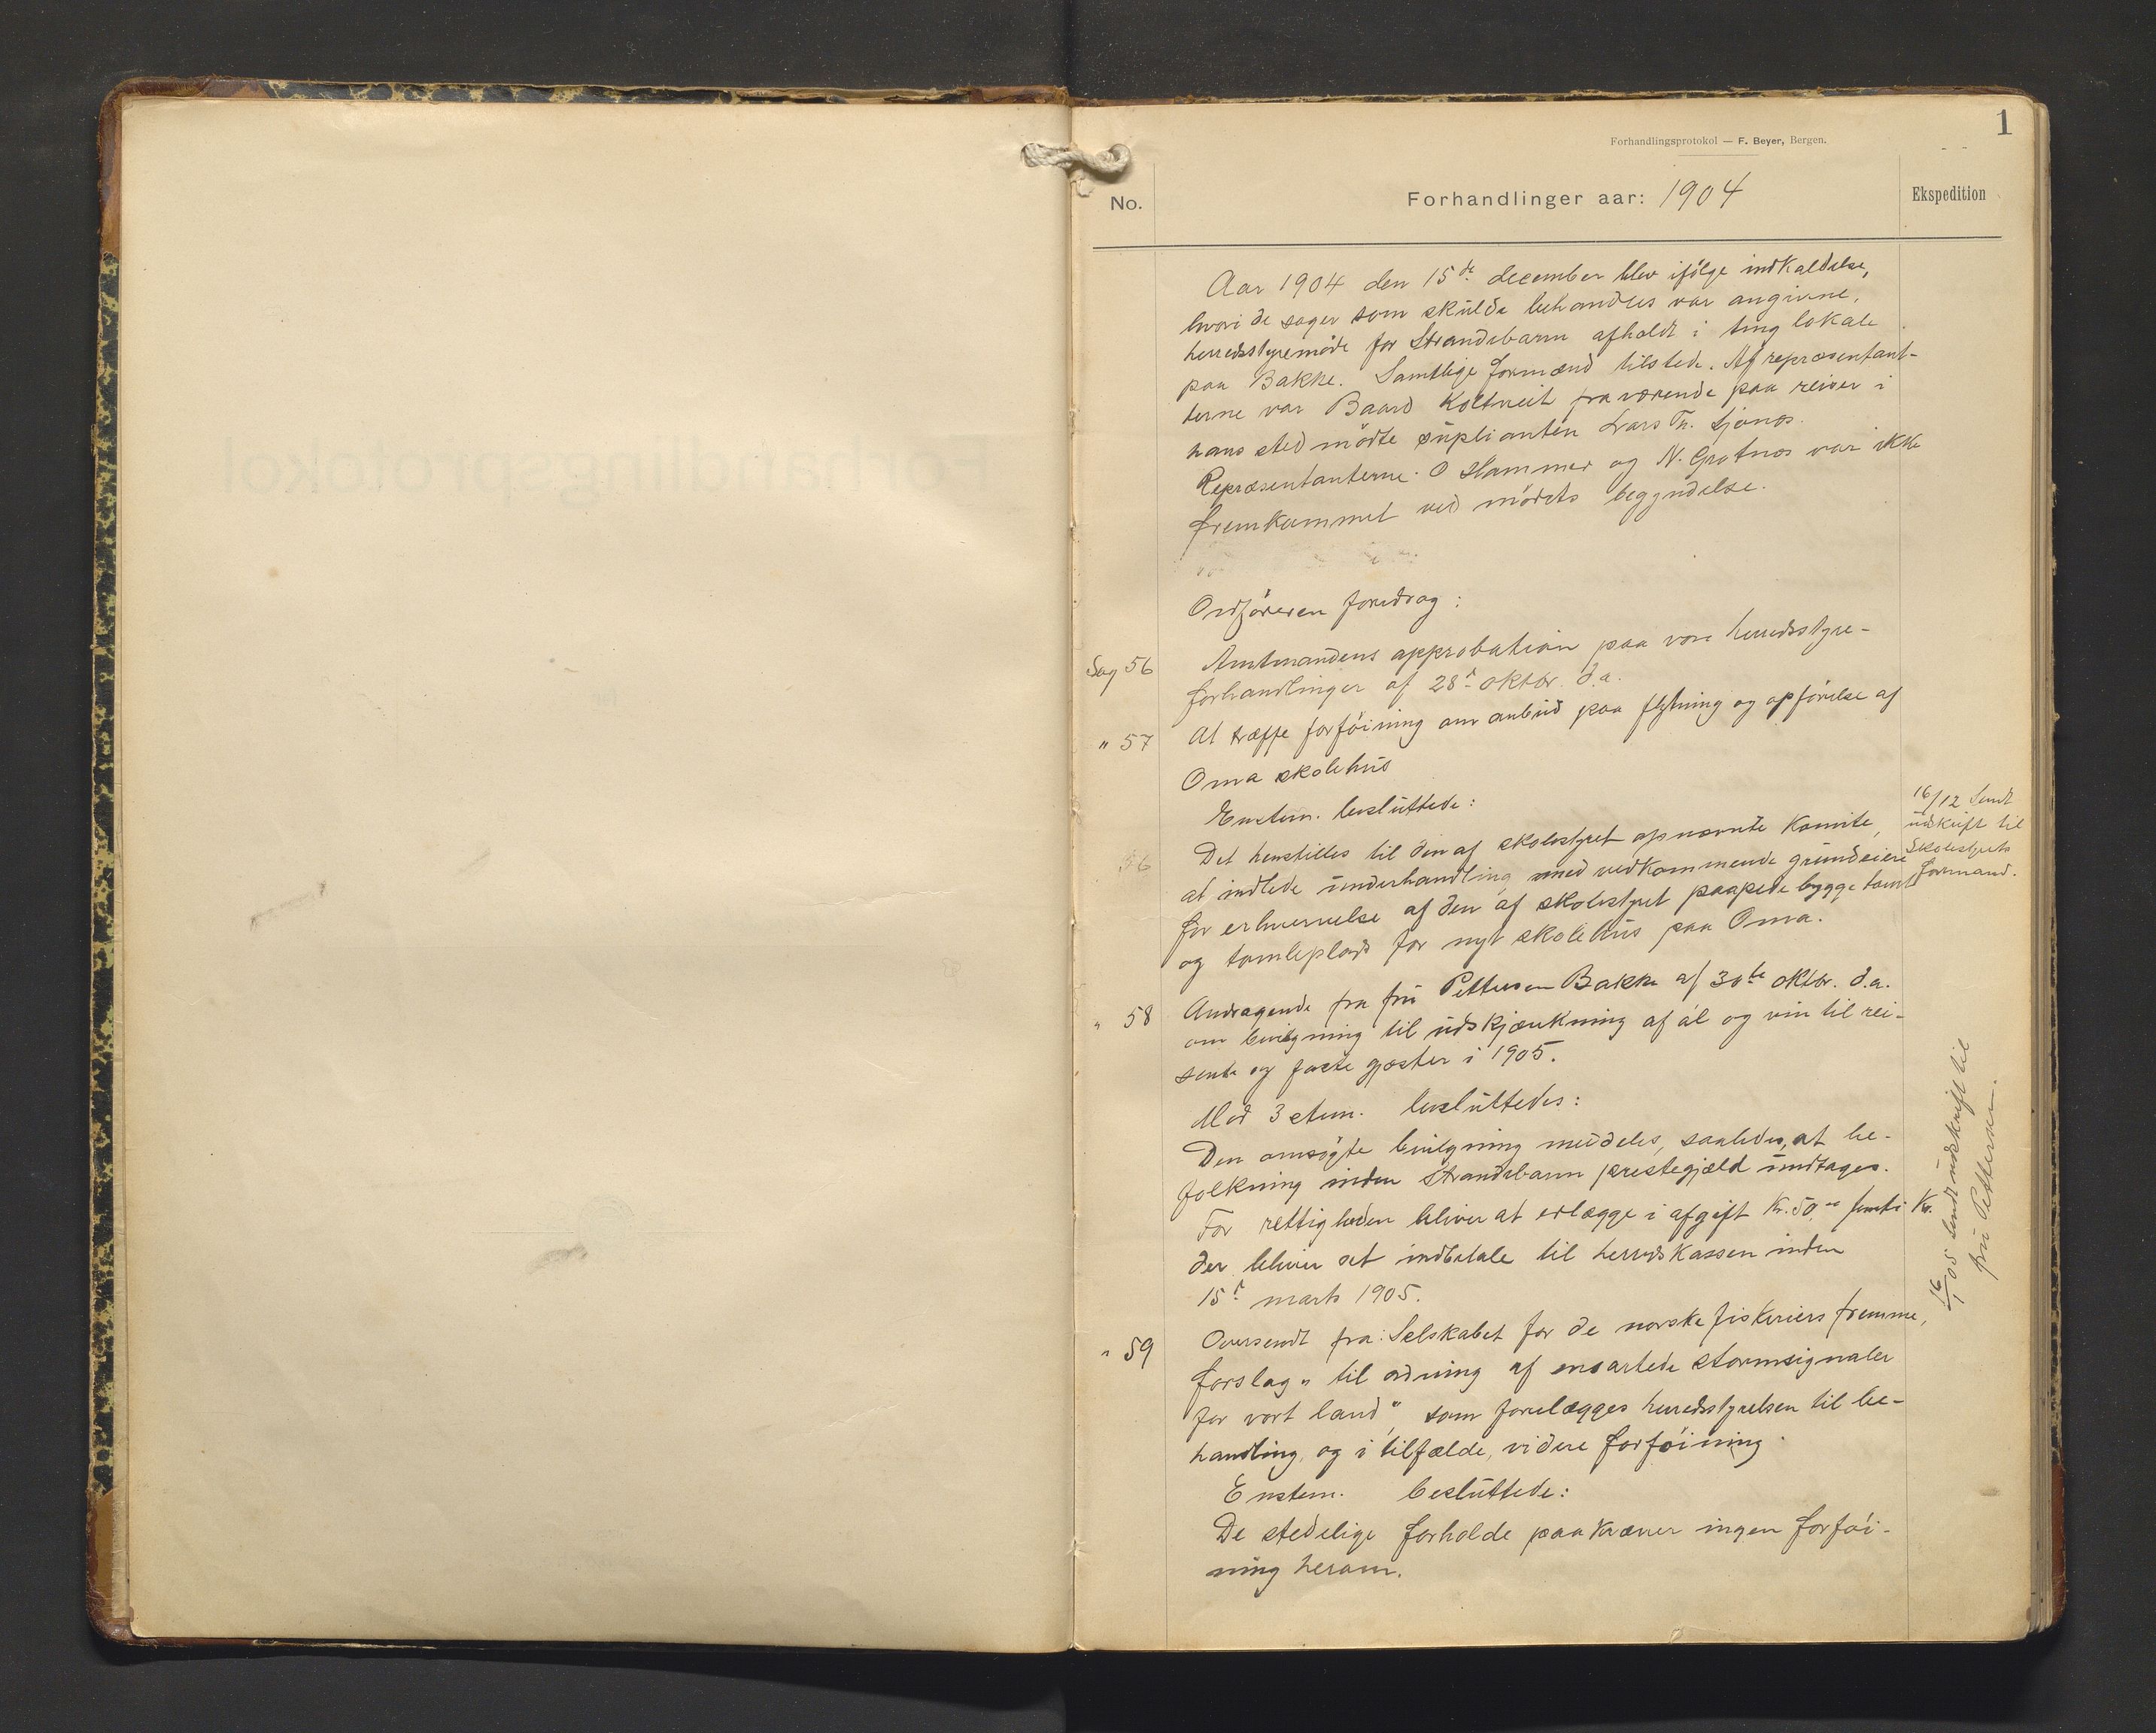 1
Forhandlingsprotokol — F. Beyer, Bergen.
No.
Forhandlinger aar: 1904
Ekspedition
Aar 1904 den 15de december blev ifölge indkaldelse,
hvori de sager som skulde behandles var angivne,
herredsstyremöde for Strandebarm afholdt i ting lokale
paa Bakke. Samtlige formænd tilstede. Af repræsentant-
terne var Baard Koltveit fraværende paa reiser i
hans sted mödte suplianten Lars Th. Sjonös.
Repræsentanterne O Hammer og N. Grotnæs var ikke
fremkommet ved mödets begyndelse.
Ordföreren foredrog:
Sag 56
Amtmandens approbation paa vore herredsstyre-
forhandlinger af 28d oktbr. d.a.
" 57
At træffe forföining om anbud paa flytning og opförelse af
Oma skolehus
Enstem. besluttede:
Det henstilles til den af skolestyret opnævnte komite,
at indlede underhandling med vedkommende grundeiere
for erhvervelse af den af skolestyret paapegede bygge tomt
og tomteplads for nyt skolehus paa Oma.
16/12 Sendt
udskrift til
skolestyrets
formand.
56
" 58
Andragende fra fru Pettersen Bakke af 30te oktbr. d.a.
om bevilgning til udskjænkning af öl og vin til rei-
sende og faste gjæster i 1905.
Mod 3 stem. besluttedes:
Den omsögte bevilgning meddeles, saaledes, at be-
folkning inden Strandebarm prestegjæld undtages.
For rettigheden bliver at erlægge i afgift Kr. 50,00 femti Kr.
der bliver at indbetale til herredskassen inden
15d marts 1905.
16/1 05 Sendt udskrift til
fru Pettersen.
" 59
Oversendt fra: Selskabet for de norske fiskeriers fremme,
forslag " til ordning af ensartede stormsignaler
for vort land", som forelægges herredsstyrelsen til be-
handling, og i tilfælde, videre forföining.
Enstem. besluttede:
De stedelige forholde paakræver ingen forföi-
ning herom.